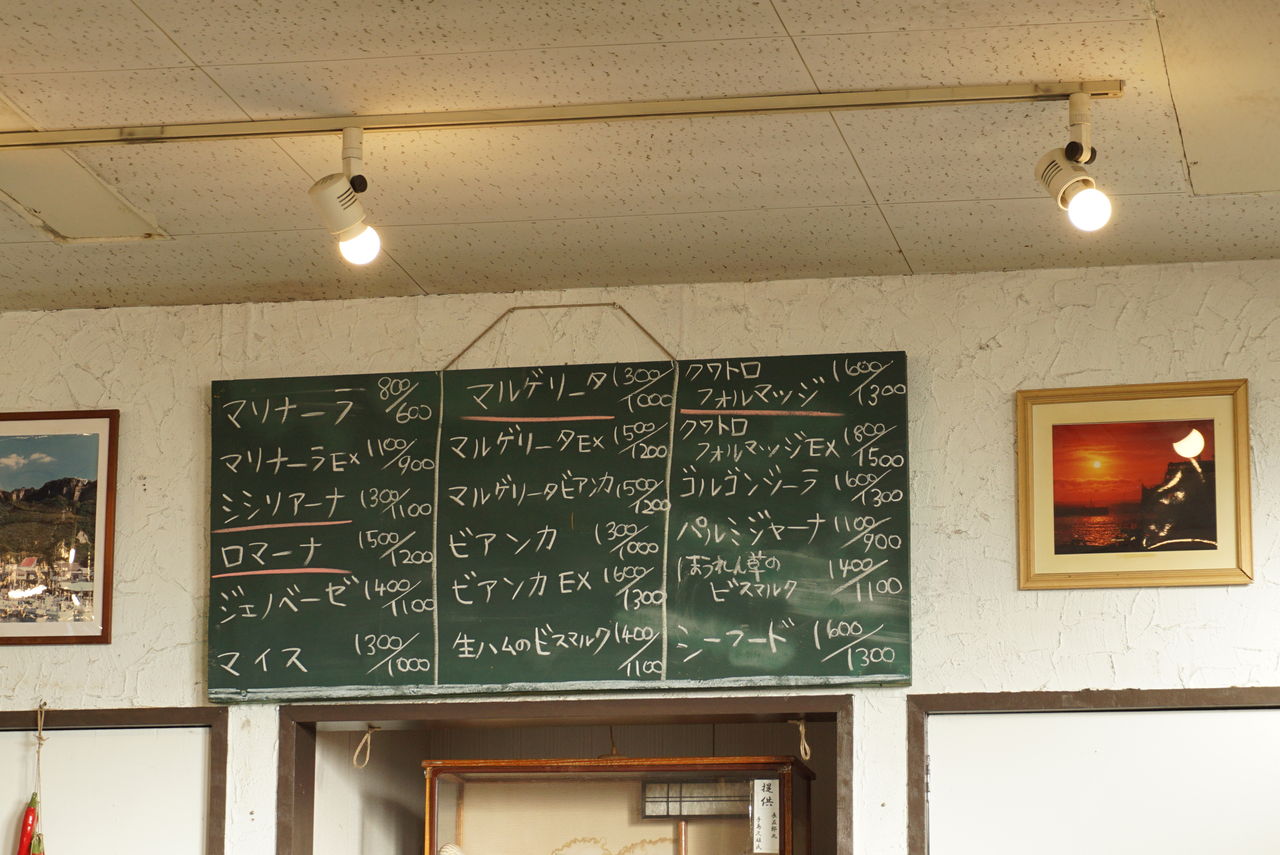 マリナーラ 800/600
マリナーラEX 1100/900
シシリアーナ 1300/1100
ロマーナ 1500/1200
ジェノベーゼ 1400/1100
マイス 1300/1000
マルゲリータ 1300/1000
マルゲリータEX 1500/1200
マルゲリータビアンカ 1500/1200
ビアンカ 1300/1000
ビアンカEX 1600/1300
生ハムのビスマルク 1400/1100
クワトロ
フォルマッジ 1600/1300
クワトロ
フォルマッジEX 1800/1500
ゴルゴンゾーラ 1600/1300
パルミジャーナ 1100/900
ほうれん草の
ビスマルク 1400/1100
シーフード 1600/1300
提供